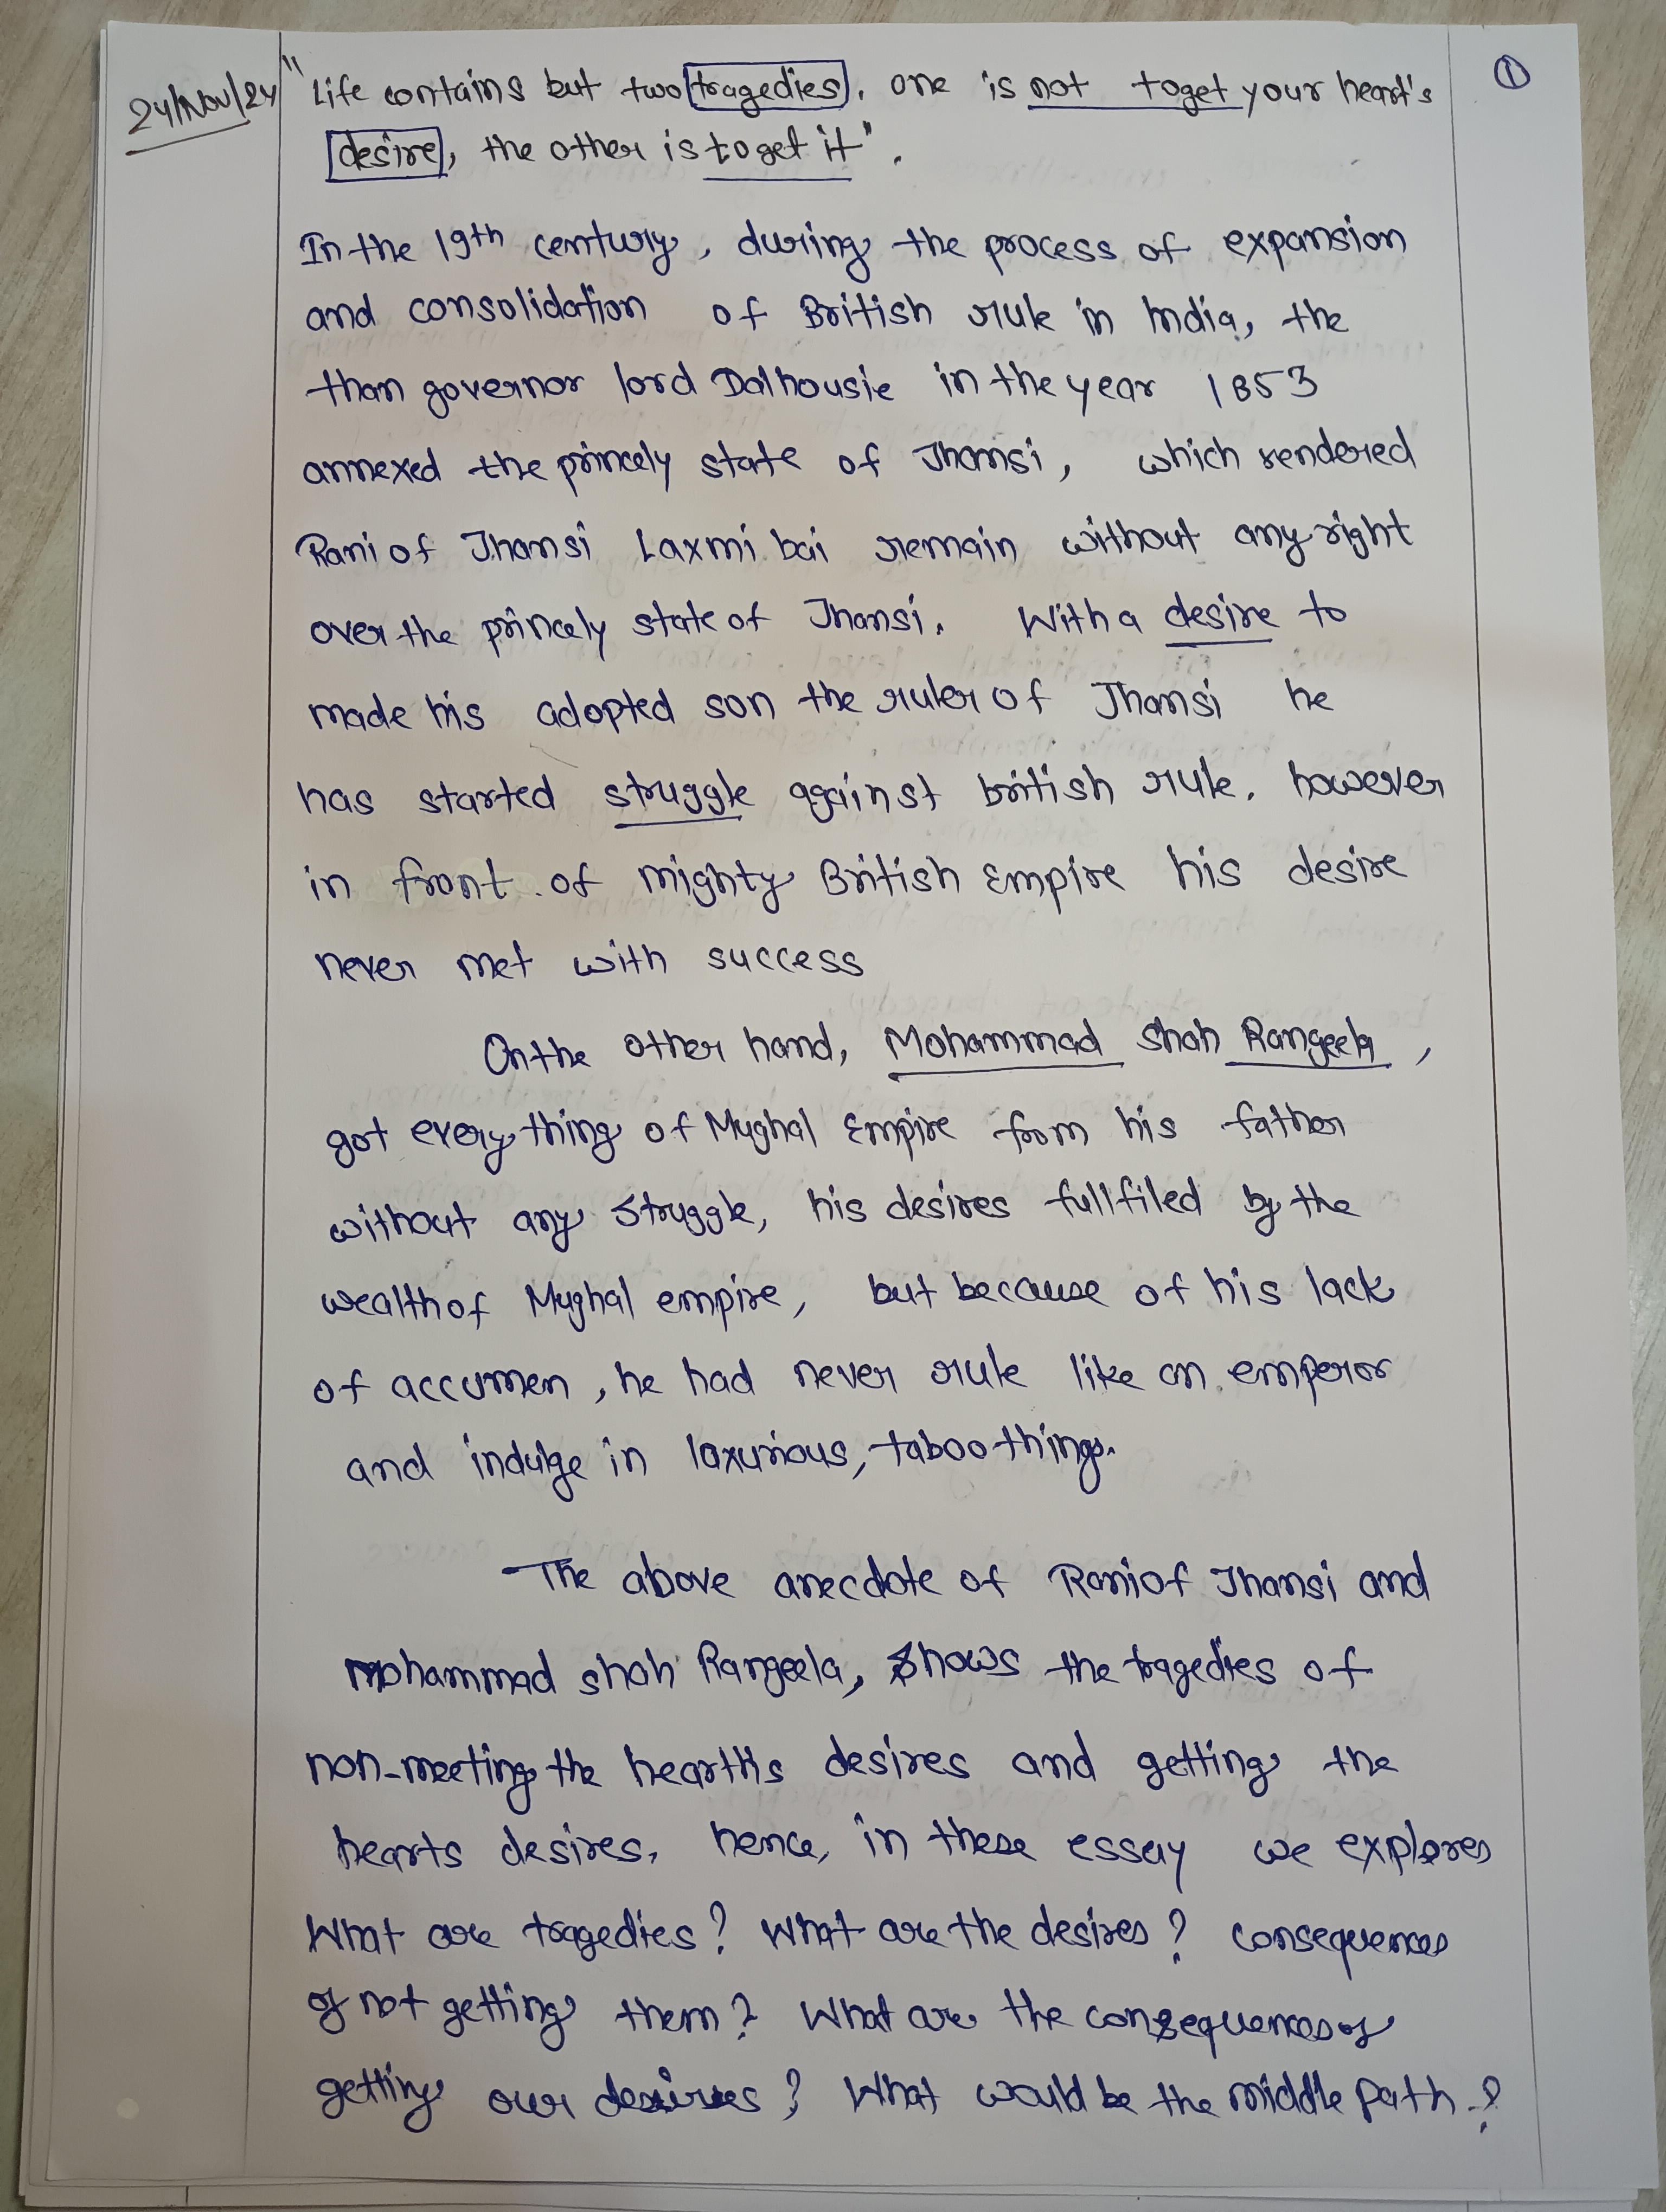 24/Nov/24 "Life contains but two tragedies, one is not toget your heart's ①
desire, the other is to get it".
In the 19th century, during the process of expansion
and consolidation of British rule in India, the
than governor lord Dalhousie in the year 1853
annexed the princely state of Jhansi, which rendered
Rani of Jhansi Laxmi bai remain without any right
over the princely state of Jhansi. With a desire to
made his adopted son the ruler of Jhansi he
has started struggle against british rule. however
in front of mighty British Empire his desire
never met with success
On the other hand, Mohammad Shah Rangeela,
got everything of Mughal Empire from his father
without any struggle, his desires fullfiled by the
wealth of Mughal empire, but because of his lack
of accumen, he had never rule like an emperor
and indulge in laxurious, taboo things.
The above anecdote of Rani of Jhansi and
Mohammad shah Rangeela, shows the tragedies of
non-meeting the hearth's desires and getting the
hearts desires. hence, in these essay we explores
What are tragedies? What are the desires? consequences
of not getting them? What are the consequences of
getting our desires? What would be the middle path?